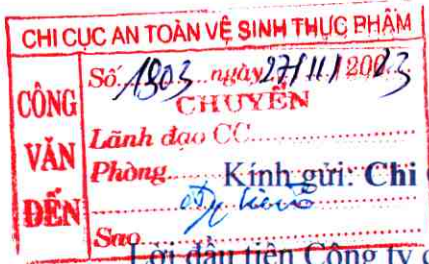 CHI CỤC AN TOÀN VỆ SINH THỰC PHẨM
CÔNG VĂN ĐẾN
Số 1803 ngày 27/11/2023
CHUYỂN
Lãnh đạo CC
Phòng
Kính gửi: Chi
Sao
Lời đầu tiên Công ty